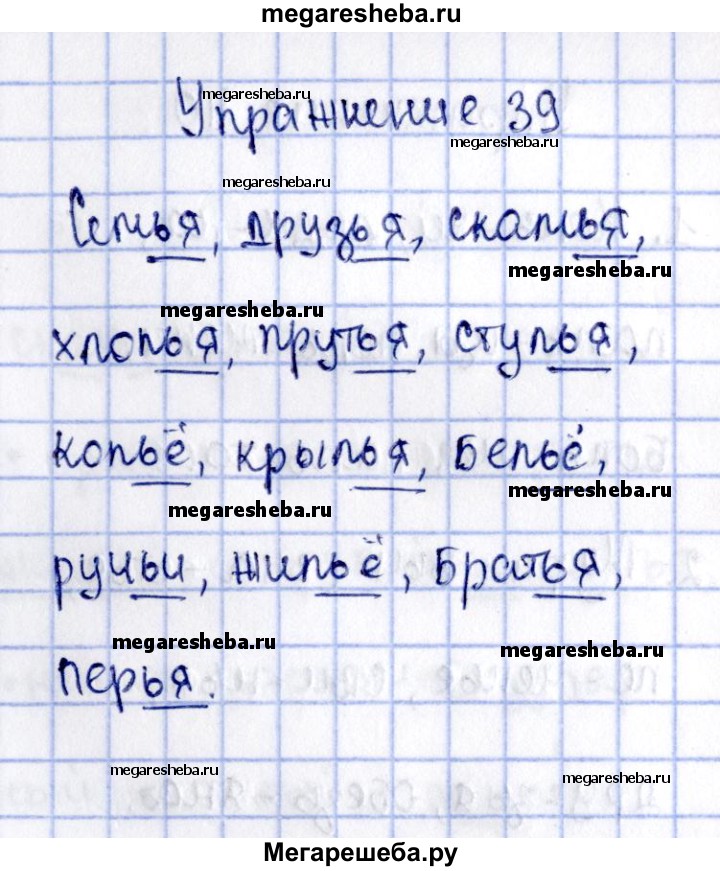 megaresheba.ru
megaresheba.ru
Упражнение 39
megaresheba.ru
megaresheba.ru
Семья, друзья, скамья,
megaresheba.ru
megaresheba.ru
хлопья, прутья, стулья,
копьё, крылья, бельё,
megaresheba.ru
megaresheba.ru
ручьи, жильё, братья,
megaresheba.ru
megaresheba.ru
перья.
megaresheba.ru
megaresheba.ru
Мегарешеба.ру